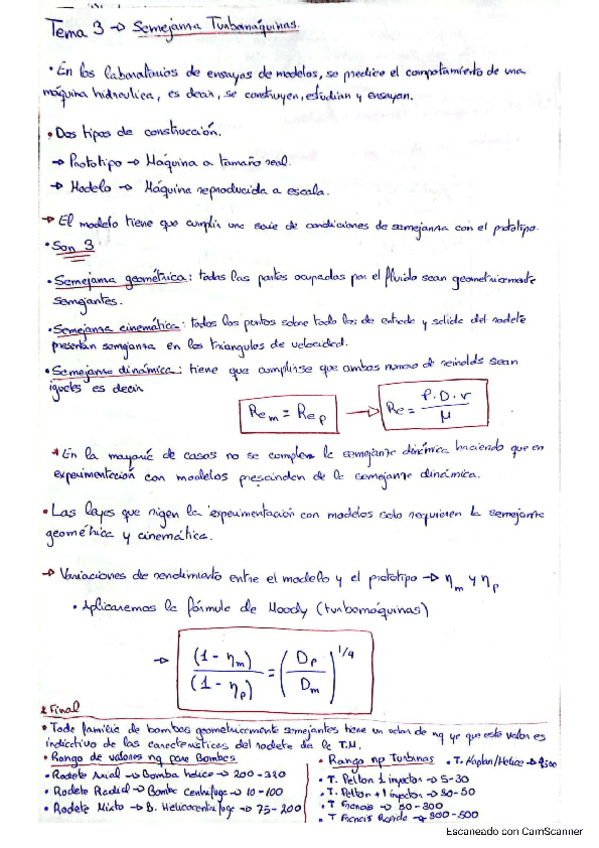 Tema 3 → Semejanza Turbomáquinas.
• En los laboratorios de ensayos de modelos, se predice el comportamiento de una
máquina hidraulica, es decir, se construyen, estudian y ensayan.
• Dos tipos de construcción.
→ Prototipo → Máquina a tamaño real.
→ Modelo → Máquina reproducida a escala.
→ El modelo tiene que cumplir una serie de condiciones de semejanza con el prototipo.
• Son 3
• Semejanza geométrica: todas las partes ocupadas por el fluido sean geometricamente
semejantes.
• Semejanza cinemática: todos los puntos sobre todo los de entrada y salida del rodete
presentan semejanza en los triangulos de velocidad.
• Semejanza dinámica: tiene que cumplirse que ambos numero de reinolds sean
iguales es decir
Re_m = Re_p → Re = ρ·D·v / μ
* En la mayoria de casos no se cumplen la semejanza dinámica haciendo que en
experimentación con modelos prescinden de la semejanza dinámica.
• Las leyes que rigen la experimentación con modelos solo requieren la semejanza
geométrica y cinemática.
→ Variaciones de rendimiento entre el modelo y el prototipo → η_m y η_p
• Aplicaremos la fórmula de Moody (turbomáquinas)
→ (1 - η_m) / (1 - η_p) = (D_p / D_m)^1/4
Final
• Toda familia de bombas geometricamente semejantes tiene un valor de nq ya que este valor es
indicativo de las caracteristicas del rodete de la T.M.
• Rango de valores nq para Bombas
• Rodete Axial → Bomba helice → 200-320
• Rodete Radial → Bomba Centrifuga → 10-100
• Rodete Mixto → B. Helicocentrifuga → 75-200
• Rango np Turbinas • T. Kaplan/Helice →
• T. Pelton 1 inyector → 5-30
• T. Pelton +1 inyector → 30-50
• T Francis → 50-300
• T Francis Rapida → 300-500
Escaneado con CamScanner